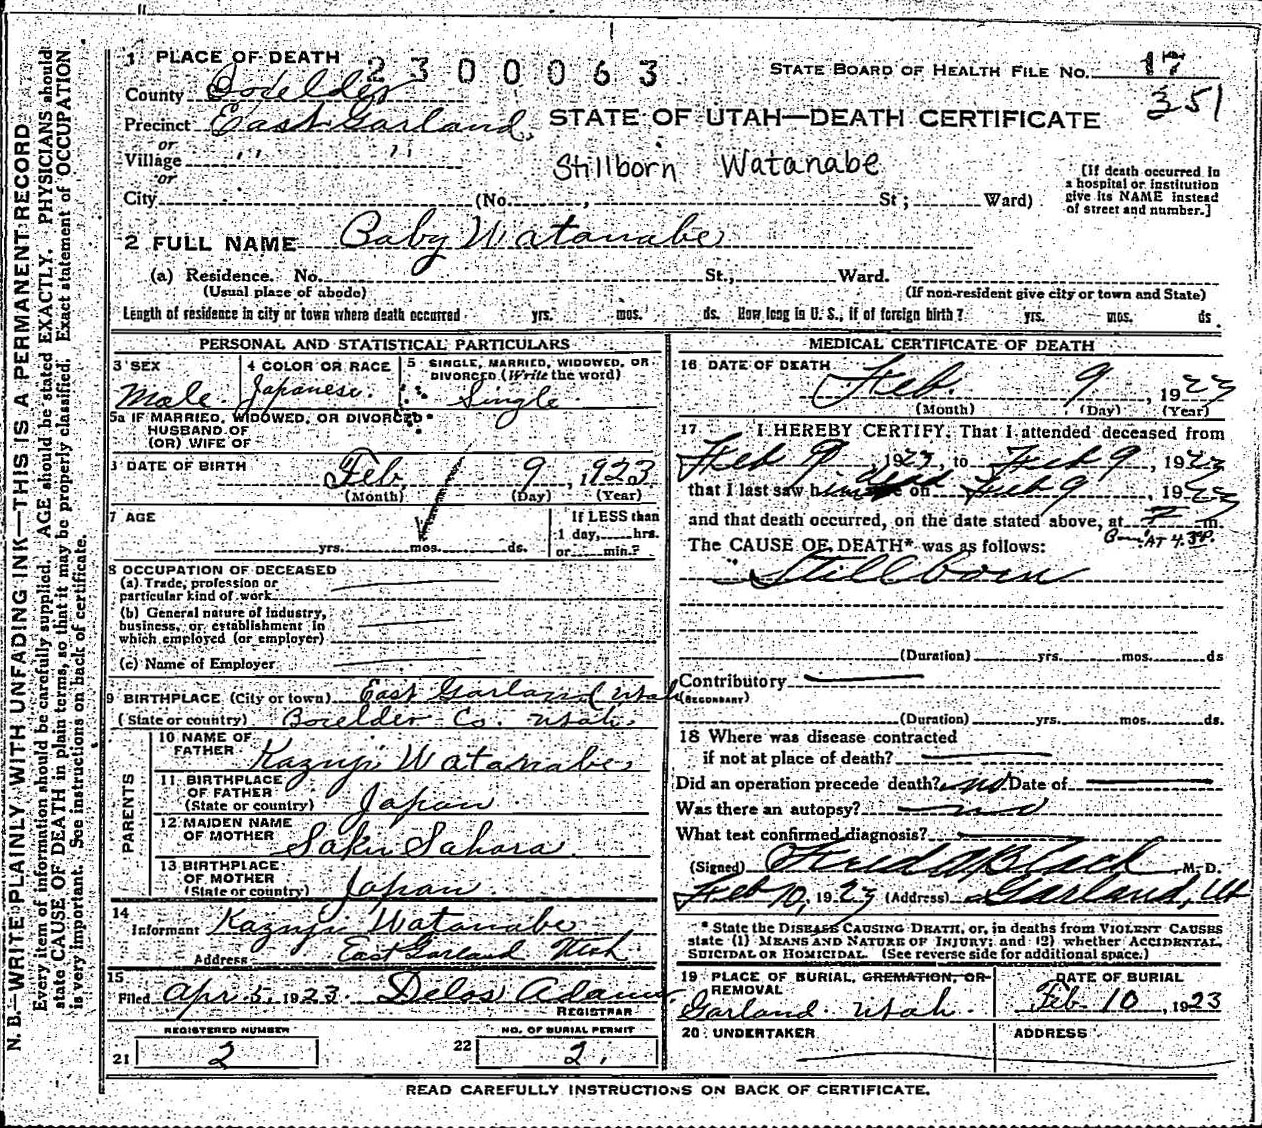 1 PLACE OF DEATH 2300063
STATE BOARD OF HEALTH FILE NO. 17
351
County Boxelder
Precinct East Garland
STATE OF UTAH—DEATH CERTIFICATE
or
Village " "
or
Stillborn Watanabe
City (No. , St; Ward)
[If death occurred in
a hospital or institution
give its NAME instead
of street and number.]
2 FULL NAME Baby Watanabe
(a) Residence. No. St., Ward.
(Usual place of abode)
(If non-resident give city or town and State)
Length of residence in city or town where death occurred yrs. mos. ds. How long in U. S., if of foreign birth? yrs. mos. ds
PERSONAL AND STATISTICAL PARTICULARS
3 SEX
Male
4 COLOR OR RACE
Japanese.
5 SINGLE, MARRIED, WIDOWED, OR
DIVORCED (Write the word)
Single
5a IF MARRIED, WIDOWED, OR DIVORCED
HUSBAND OF
(OR) WIFE OF
DATE OF BIRTH
Feb. 9, 1923
(Month) (Day) (Year)
7 AGE
yrs. mos. ds.
If LESS than
1 day, hrs.
or min.?
8 OCCUPATION OF DECEASED
(a) Trade, profession or
particular kind of work
(b) General nature of industry,
business, or establishment in
which employed (or employer)
(c) Name of Employer
9 BIRTHPLACE (City or town) East Garland Utah
(State or country) Boxelder Co. Utah
PARENTS
10 NAME OF
FATHER Kazuji Watanabe
11 BIRTHPLACE
OF FATHER
(State or country) Japan
12 MAIDEN NAME
OF MOTHER Saku Sahara
13 BIRTHPLACE
OF MOTHER
(State or country) Japan
14
Informant Kazuju Watanabe
Address East Garland Utah
15
Filed Apr. 5, 1923. Delos Adams
REGISTRAR
REGISTERED NUMBER
21 2
NO. OF BURIAL PERMIT
22 2.
MEDICAL CERTIFICATE OF DEATH
16 DATE OF DEATH
Feb. 9, 1923
(Month) (Day) (Year)
17 I HEREBY CERTIFY, That I attended deceased from
Feb 9, 1923, to Feb 9, 1923
that I last saw him dead on Feb 9, 1923
and that death occurred, on the date stated above, at m.
Born AT 4.30P.
The CAUSE OF DEATH* was as follows:
Stillborn
(Duration) yrs. mos. ds
Contributory
(SECONDARY)
(Duration) yrs. mos. ds.
18 Where was disease contracted
if not at place of death?
Did an operation precede death? no Date of
Was there an autopsy? no
What test confirmed diagnosis?
(Signed) Black M. D.
Feb 10, 1923 (Address) Garland, Ut
* State the DISEASE CAUSING DEATH, or, in deaths from VIOLENT CAUSES
state (1) MEANS AND NATURE OF INJURY; and (2) whether ACCIDENTAL,
SUICIDAL OR HOMICIDAL. (See reverse side for additional space.)
19 PLACE OF BURIAL, CREMATION, OR
REMOVAL
Garland Utah.
DATE OF BURIAL
Feb 10, 1923
20 UNDERTAKER
ADDRESS
READ CAREFULLY INSTRUCTIONS ON BACK OF CERTIFICATE.
N. B.—WRITE PLAINLY WITH UNFADING INK—THIS IS A PERMANENT RECORD
Every item of information should be carefully supplied. AGE should be stated EXACTLY. PHYSICIANS should
state CAUSE OF DEATH in plain terms, so that it may be properly classified. Exact statement of OCCUPATION
is very important. See instructions on back of certificate.